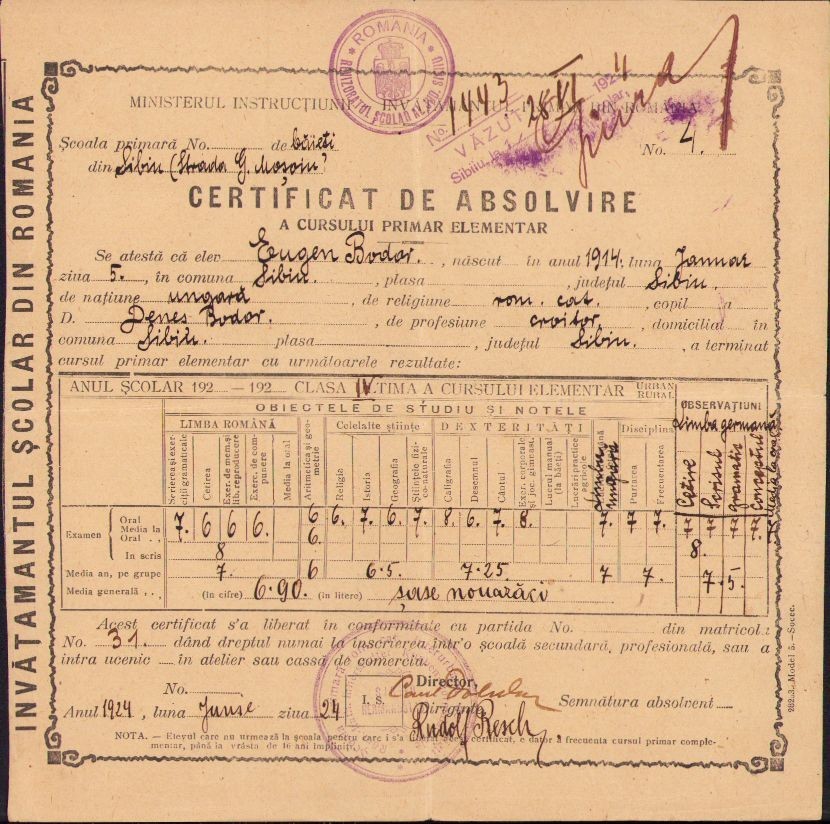 ROMÂNIA
INVĂȚAMANTUL ȘCOLAR DIN ROMANIA
MINISTERUL INSTRUCȚIUNII
DIN ROMANIA
No. 1443
28 VI 1924
VĂZUT
Sibiiu,
Școala primară No. de băieti
No. 4.
din Sibiu (Strada G. Moșoiu)
CERTIFICAT DE ABSOLVIRE
A CURSULUI PRIMAR ELEMENTAR
Se atestă că elev Eugen Bodor. , născut în anul 1914. luna Januar
ziua 5. , în comuna Sibiu. , plasa , județul Sibiu.
de națiune ungară , de religiune rom. cat. , copil a
D. Denes Bodor. , de profesiune croitor , domiciliat în
comuna Sibiu. plasa , județul Sibiu. , a terminat
cursul primar elementar cu următoarele rezultate:
ANUL ȘCOLAR 192 — 192 CLASA IV ULTIMA A CURSULUI ELEMENTAR URBAN RURAL
OBIECTELE DE STUDIU ȘI NOTELE OBSERVAȚIUNI
LIMBA ROMÂNĂ Celelalte științe DEXTERITĂȚI Disciplina Limba germană
Scrierea și exerciții gramaticale Cetirea Exer. de mem. și lib. reproducere Exerc. de compunere Media la oral Aritmetica și geometrie Religia Istoria Geografia Științele fizico-naturale Caligrafia Desemnul Cântul Exer. corporale și joc. gimnast. Lucrul manual (la băeți) Lucrări practice agricole Limba ungară Purtarea Frecuentarea Cetire Scrisul gramatic Conceptul Media la oral
Examen Oral 7. 6 6 6. 6 6. 7. 6. 7. 8. 6. 7. 8. 7. 7. 7.
Media la Oral 6.
In scris 8 8.
Media an, pe grupe 7. 6 6.5. 7.25. 7 7. 7.5.
Media generală (în cifre) 6.90. (în litere) șase nouăzăci
Acest certificat s'a liberat în conformitate cu partida No. din matricolă
No. 31. dând dreptul numai la înscrierea într'o școală secundară, profesională, sau a
intra ucenic în atelier sau cassă de comerciu.
Director,
No. L. S. Diriginte Semnătura absolvent
Anul 1924 , luna Junie ziua 24 Rudolf Resch
NOTA. — Elevul care nu urmează la școala pentru care i s'a liberat acest certificat, e dator a frecuenta cursul primar comple-
mentar, până la vrâsta de 16 ani împliniți.
282.3.–Model 5.–Socec.